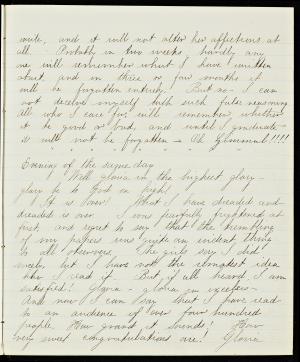 write, and it will not alter her affections at
all. Probably in two weeks, hardly any
one will remember what I have written
about, and in three or four months it
will be forgotten entirely! But no - I can
not deceive myself with such false reasoning
all who I care for will remember, whether
it be good or bad, and until I graduate -
it will not be forgotten - Oh Gimmini!!!!
Evening of the same day
Well gloria in the highest glory -
glory be to God on high!
It is over! What I have dreaded and
dreaded is over. I was fearfully frightened at
first, and regret to say that the trembling
of my papers was quite an evident thing
to all observers. The girls say I did
nicely but I have not the remotest idea
how I read it. But of all heard I am
satisfied! Gloria - gloria in excelsis -
And now I can say that I have read
to an audience of over four hundred
people. How grand it sounds! How
very sweet congratulations are! Gloria